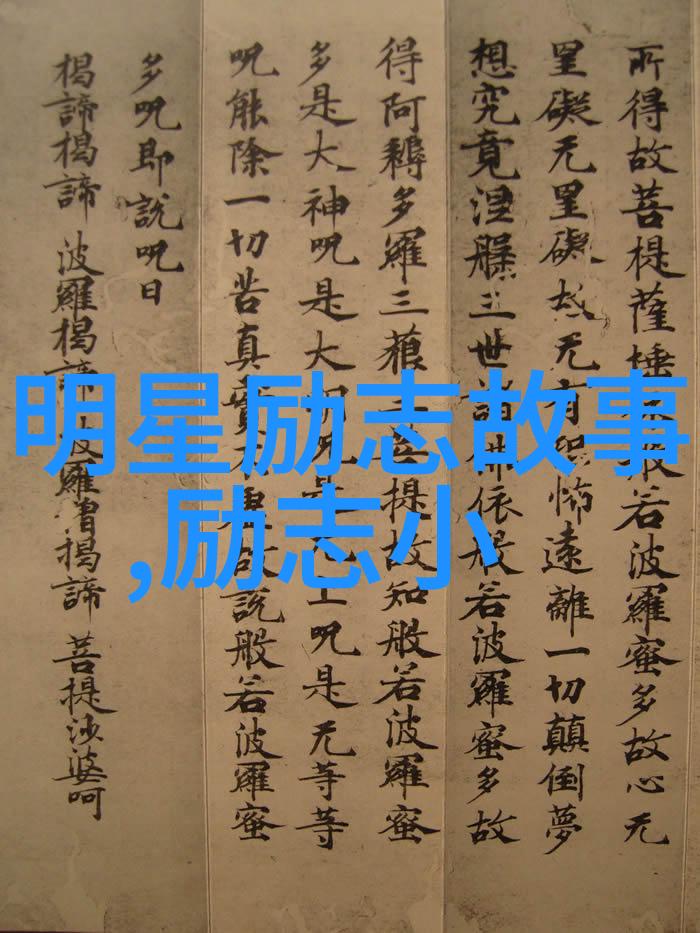 所得故菩提薩埵般若波羅蜜多故心无
罣礙无罣礙故无有恐怖遠離一切顛倒夢
想究竟涅槃三世諸佛依般若波羅蜜多故
得阿耨多羅三藐三菩提故知般若波羅蜜
多是大神呪是大明呪是无上呪是无等等
呪能除一切苦真實不虛故說般若波羅蜜
多呪即說呪曰
揭諦揭諦 波羅揭諦 波羅僧揭諦 菩提沙婆呵
明星励志故事
,励志小